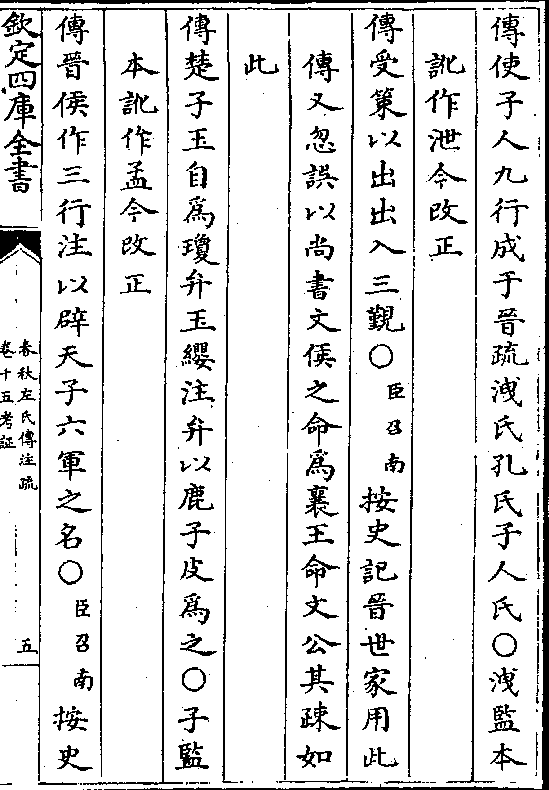 傳使子人九行成于晉疏洩氏孔氏子人氏○洩監本
訛作泄今改正
傳受策以出出入三覲○臣召南按史記晉世家用此
傳又忽誤以尚書文侯之命爲襄王命文公其疎如
此
傳楚子玉自爲瓊弁玉纓注弁以鹿子皮爲之○子監
本訛作孟今改正
傳晉侯作三行注以辟天子六軍之名○臣召南按史
欽定四庫全書
春秋左氏傳注疏
卷十五考証
五